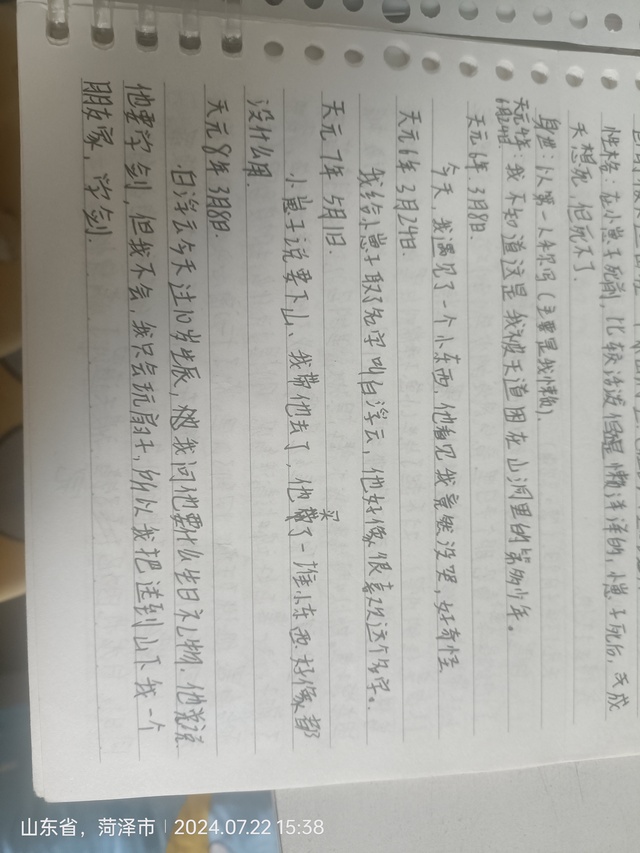 性格：在小崽子死前，比较活泼但是懒洋洋的，小崽子死后，变成
天想死，但死不了
身世：以第一人称写（主要是我懒）
我不知道这是我被天道困在山洞里的第多少年。
天元6年3月8日.
今天，我遇见了一个小东西，他看见我竟然没哭，好奇怪
天元6年3月24日.
我给小崽子取了名字叫白浮云，他好像很喜欢这个名字。
天元7年5月1日.
小崽子说要下山，我带他去了，他买了一堆小东西，好像都
没什么用.
天元8年3月8日.
白浮云今天过10岁生辰，我问他要什么生日礼物，他说
他要学剑，但我不会，我只会玩扇子，所以我把送到山下我一个
朋友家，学剑.
山东省，菏泽市 | 2024.07.22 15:38